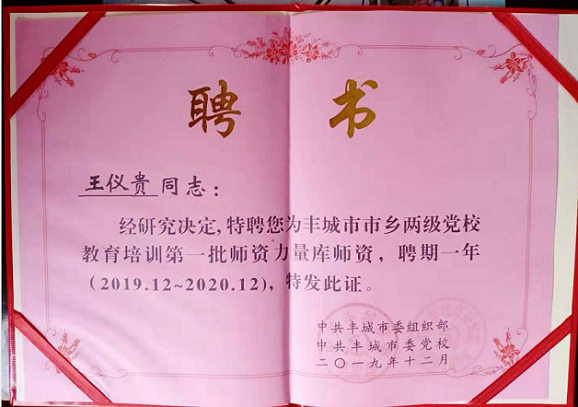 聘 书
王仪贵同志：
经研究决定，特聘您为丰城市市乡两级党校
教育培训第一批师资力量库师资，聘期一年
(2019.12~2020.12)，特发此证。
中共丰城市委组织部
中共丰城市委党校
二〇一九年十二月